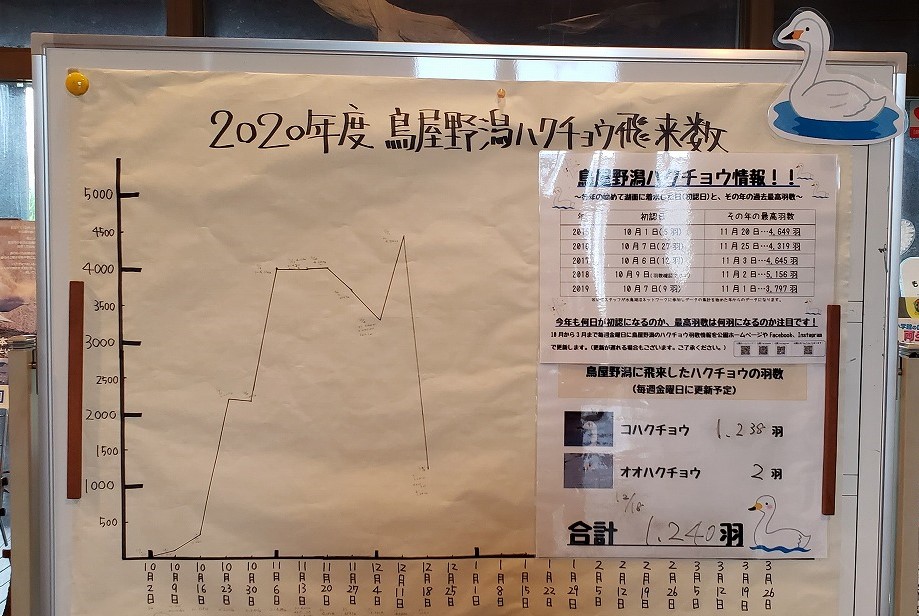 2020年度 鳥屋野潟ハクチョウ飛来数
5000
4500
4000
3500
3000
2500
2000
1500
1000
500
10月2日
10月9日
10月16日
10月23日
10月30日
11月6日
11月13日
11月20日
11月27日
12月4日
12月11日
12月18日
12月25日
1月1日
1月8日
1月15日
1月22日
1月29日
2月5日
2月12日
2月19日
2月26日
3月5日
3月12日
3月19日
3月26日
鳥屋野潟ハクチョウ情報！！
～今年の初めて湖面に着水した日(初認日)と、その年の過去最高羽数～
年 初認日 その年の最高羽数
2015 10月1日(5羽) 11月20日…4,649羽
2016 10月7日(27羽) 11月25日…4,319羽
2017 10月6日(12羽) 11月3日…4,645羽
2018 10月9日 11月2日…5,156羽
2019 10月7日(9羽) 11月1日…3,797羽
今年も何日が初認になるのか、最高羽数は何羽になるのか注目です！
10月から3月まで毎週金曜日に鳥屋野潟のハクチョウ羽数情報を公園ホームページやFacebook、Instagram
で更新します。(更新が遅れる場合もございます。ご了承ください。)
鳥屋野潟に飛来したハクチョウの羽数
(毎週金曜日に更新予定)
コハクチョウ 1,238羽
オオハクチョウ 2羽
12/18
合計 1,240羽